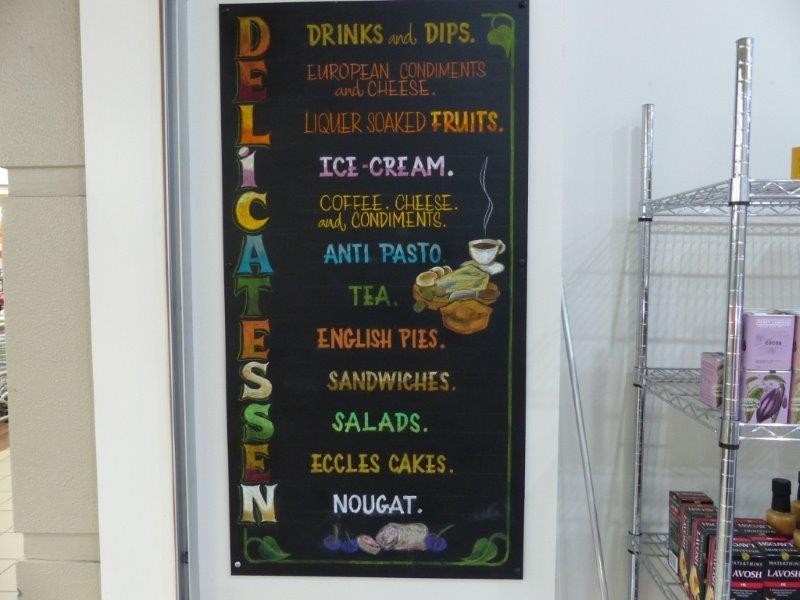 DELiCATESSEN
DRINKS and DIPS.
EUROPEAN CONDIMENTS
and CHEESE.
LIQUER SOAKED FRUITS.
ICE-CREAM.
COFFEE. CHEESE.
and CONDIMENTS.
ANTI PASTO.
TEA.
ENGLISH PIES.
SANDWICHES.
SALADS.
ECCLES CAKES.
NOUGAT.
LAVOSH
LAVOSH